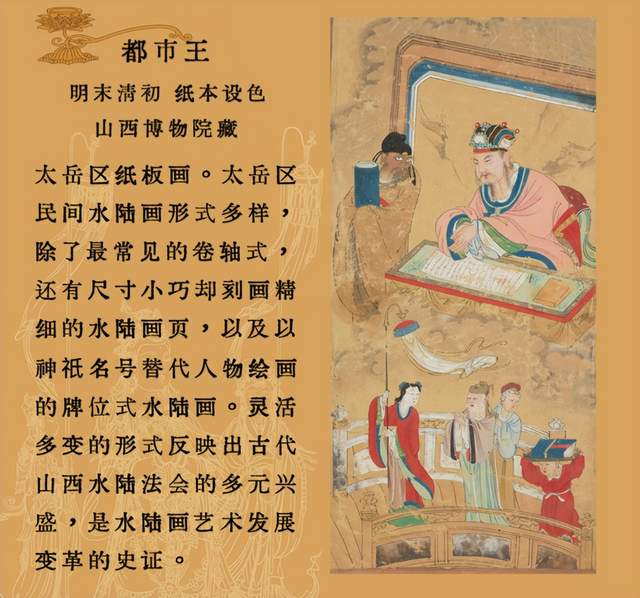 都市王
明末清初 纸本设色
山西博物院藏
太岳区纸板画。太岳区
民间水陆画形式多样，
除了最常见的卷轴式，
还有尺寸小巧却刻画精
细的水陆画页，以及以
神祇名号替代人物绘画
的牌位式水陆画。灵活
多变的形式反映出古代
山西水陆法会的多元兴
盛，是水陆画艺术发展
变革的史证。